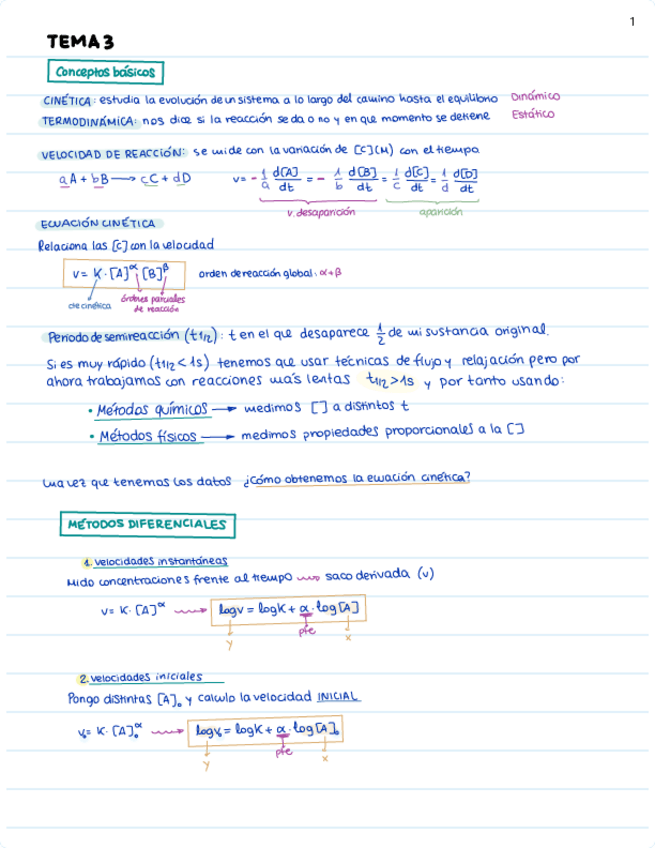 1
TEMA 3
Conceptos básicos
CINÉTICA: estudia la evolución de un sistema a lo largo del camino hasta el equilibrio Dinámico
TERMODINÁMICA: nos dice si la reacción se da o no y en que momento se detiene Estático
VELOCIDAD DE REACCIÓN: se mide con la variación de [C](M) con el tiempo
aA + bB → cC + dD v = - 1/a d[A]/dt = - 1/b d[B]/dt = 1/c d[C]/dt = 1/d d[D]/dt
v. desaparición aparición
ECUACIÓN CINÉTICA
Relaciona las [C] con la velocidad
v = K · [A]^α [B]^β orden de reacción global: α+β
cte cinética órdenes parciales de reacción
Periodo de semireacción (t1/2): t en el que desaparece 1/2 de mi sustancia original.
Si es muy rápido (t1/2 < 1s) tenemos que usar técnicas de flujo y relajación pero por
ahora trabajamos con reacciones más lentas t1/2 > 1s y por tanto usando:
• Métodos químicos → medimos [] a distintos t
• Métodos físicos → medimos propiedades proporcionales a la []
una vez que tenemos los datos ¿cómo obtenemos la ecuación cinética?
MÉTODOS DIFERENCIALES
1. velocidades instantáneas
Mido concentraciones frente al tiempo → saco derivada (v)
v = K · [A]^α → log v = log K + α · log [A]
y pte x
2. velocidades iniciales
Pongo distintas [A]₀ y calculo la velocidad INICIAL
v₀ = K · [A]₀^α → log v₀ = log K + α · log [A]₀
y pte x